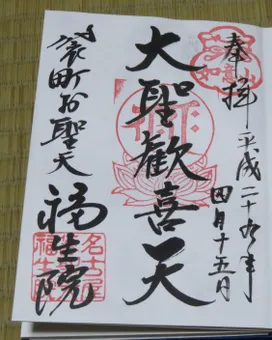 奉拝 平成二十九年
四月十五日
大聖歓喜天
袋町お聖天
福生院
名古屋
福生院